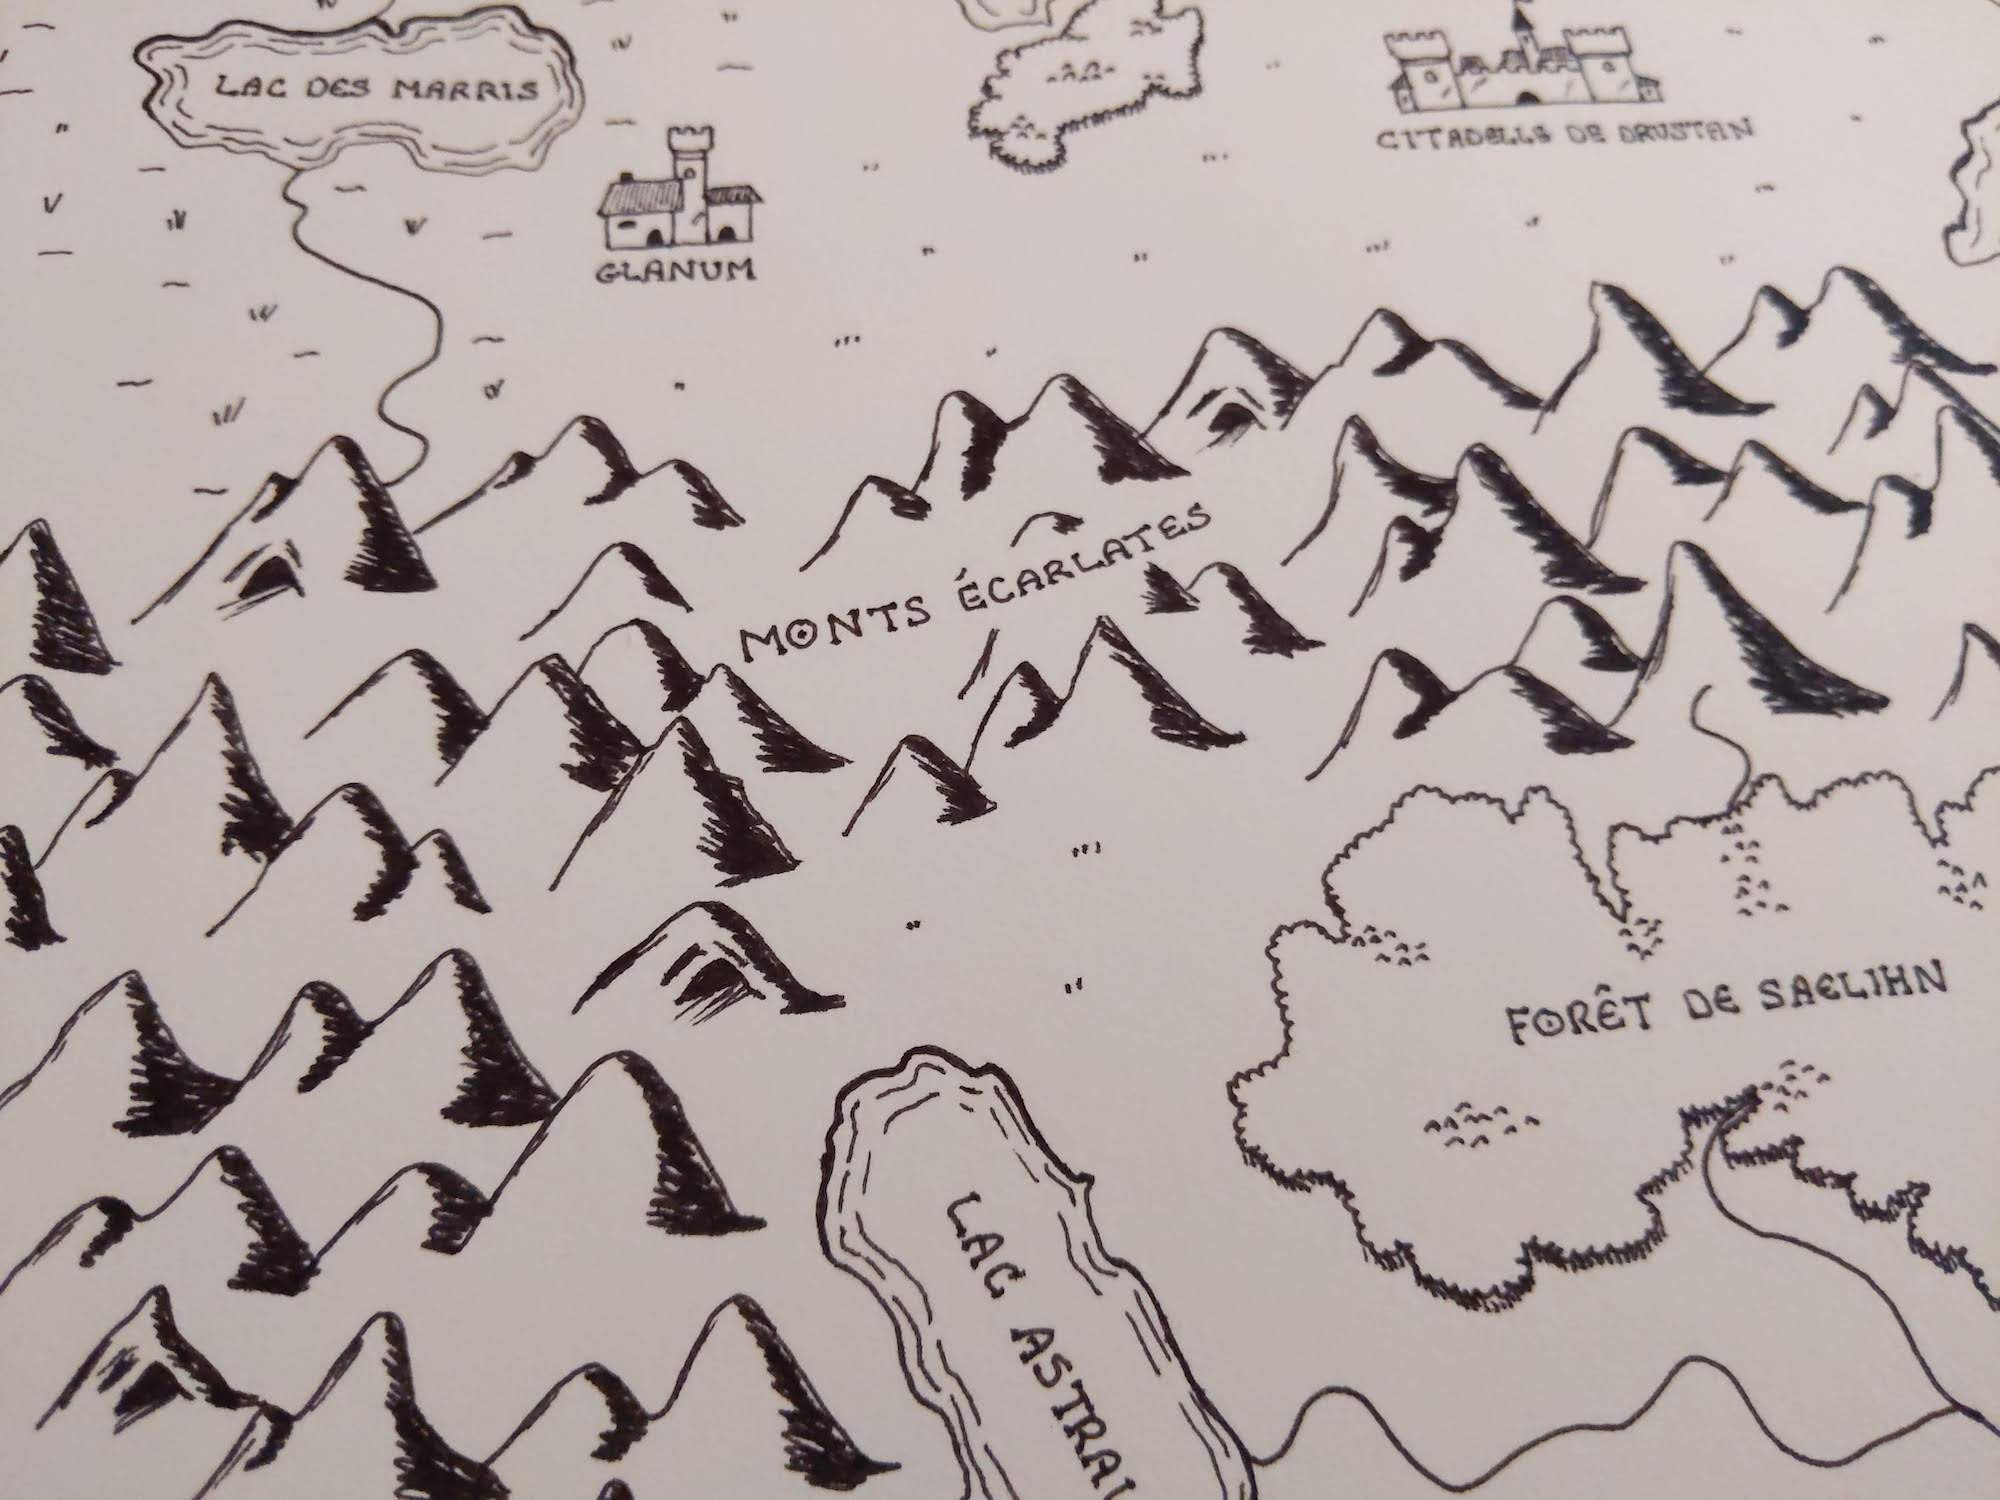 LAC DES MARRIS
CITADELLE DE DRUSTAN
GLANUM
MONTS ÉCARLATES
FORÊT DE SAELIHN
LAC ASTRAL